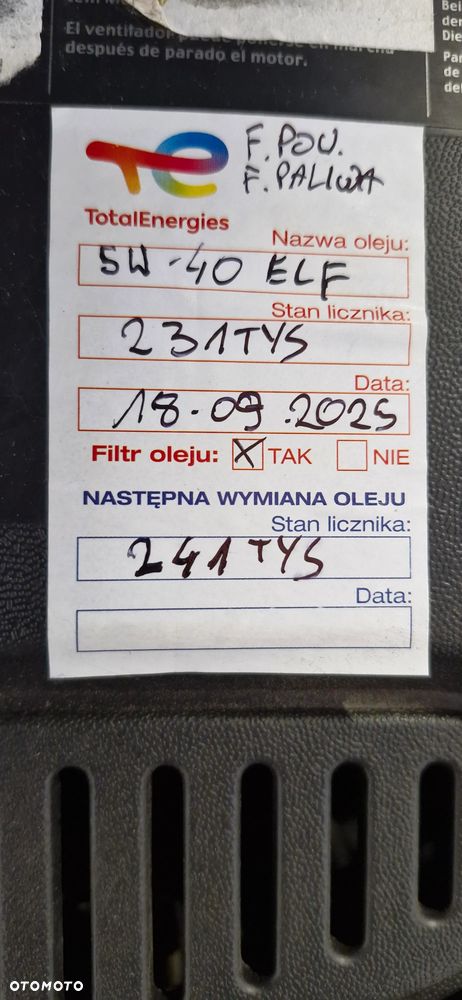 El ventilador puede ponerse en marcha
después de parado el motor.
Bei
der
Die
Par
de
de
F. POW.
F. PALIWA
TotalEnergies
Nazwa oleju:
5W-40 ELF
Stan licznika:
231TYS
Data:
18-09.2025
Filtr oleju: X TAK NIE
NASTĘPNA WYMIANA OLEJU
Stan licznika:
241TYS
Data:
OTOMOTO